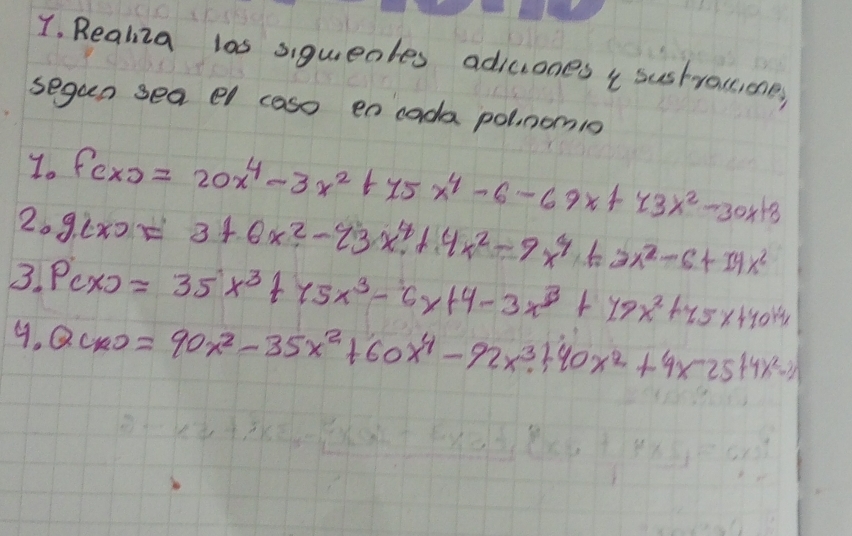 1. Realiza las siguientes adiciones y sustracciones,
segun sea el caso en cada polinomio
1. f(x) = 20x⁴ - 3x² + 15x⁴ - 6 - 69x + 13x² - 30x + 8
2. g(x) = 3 + 6x² - 13x⁴ + 4x² - 9x⁴ + 3x² - 6 + 14x²
3. P(x) = 35x³ + 15x³ - 6x + 4 - 3x³ + 19x² + 15x + 10
4. Q(x) = 90x² - 35x² + 60x⁴ - 92x³ + 40x² + 4x - 25 + 4x²